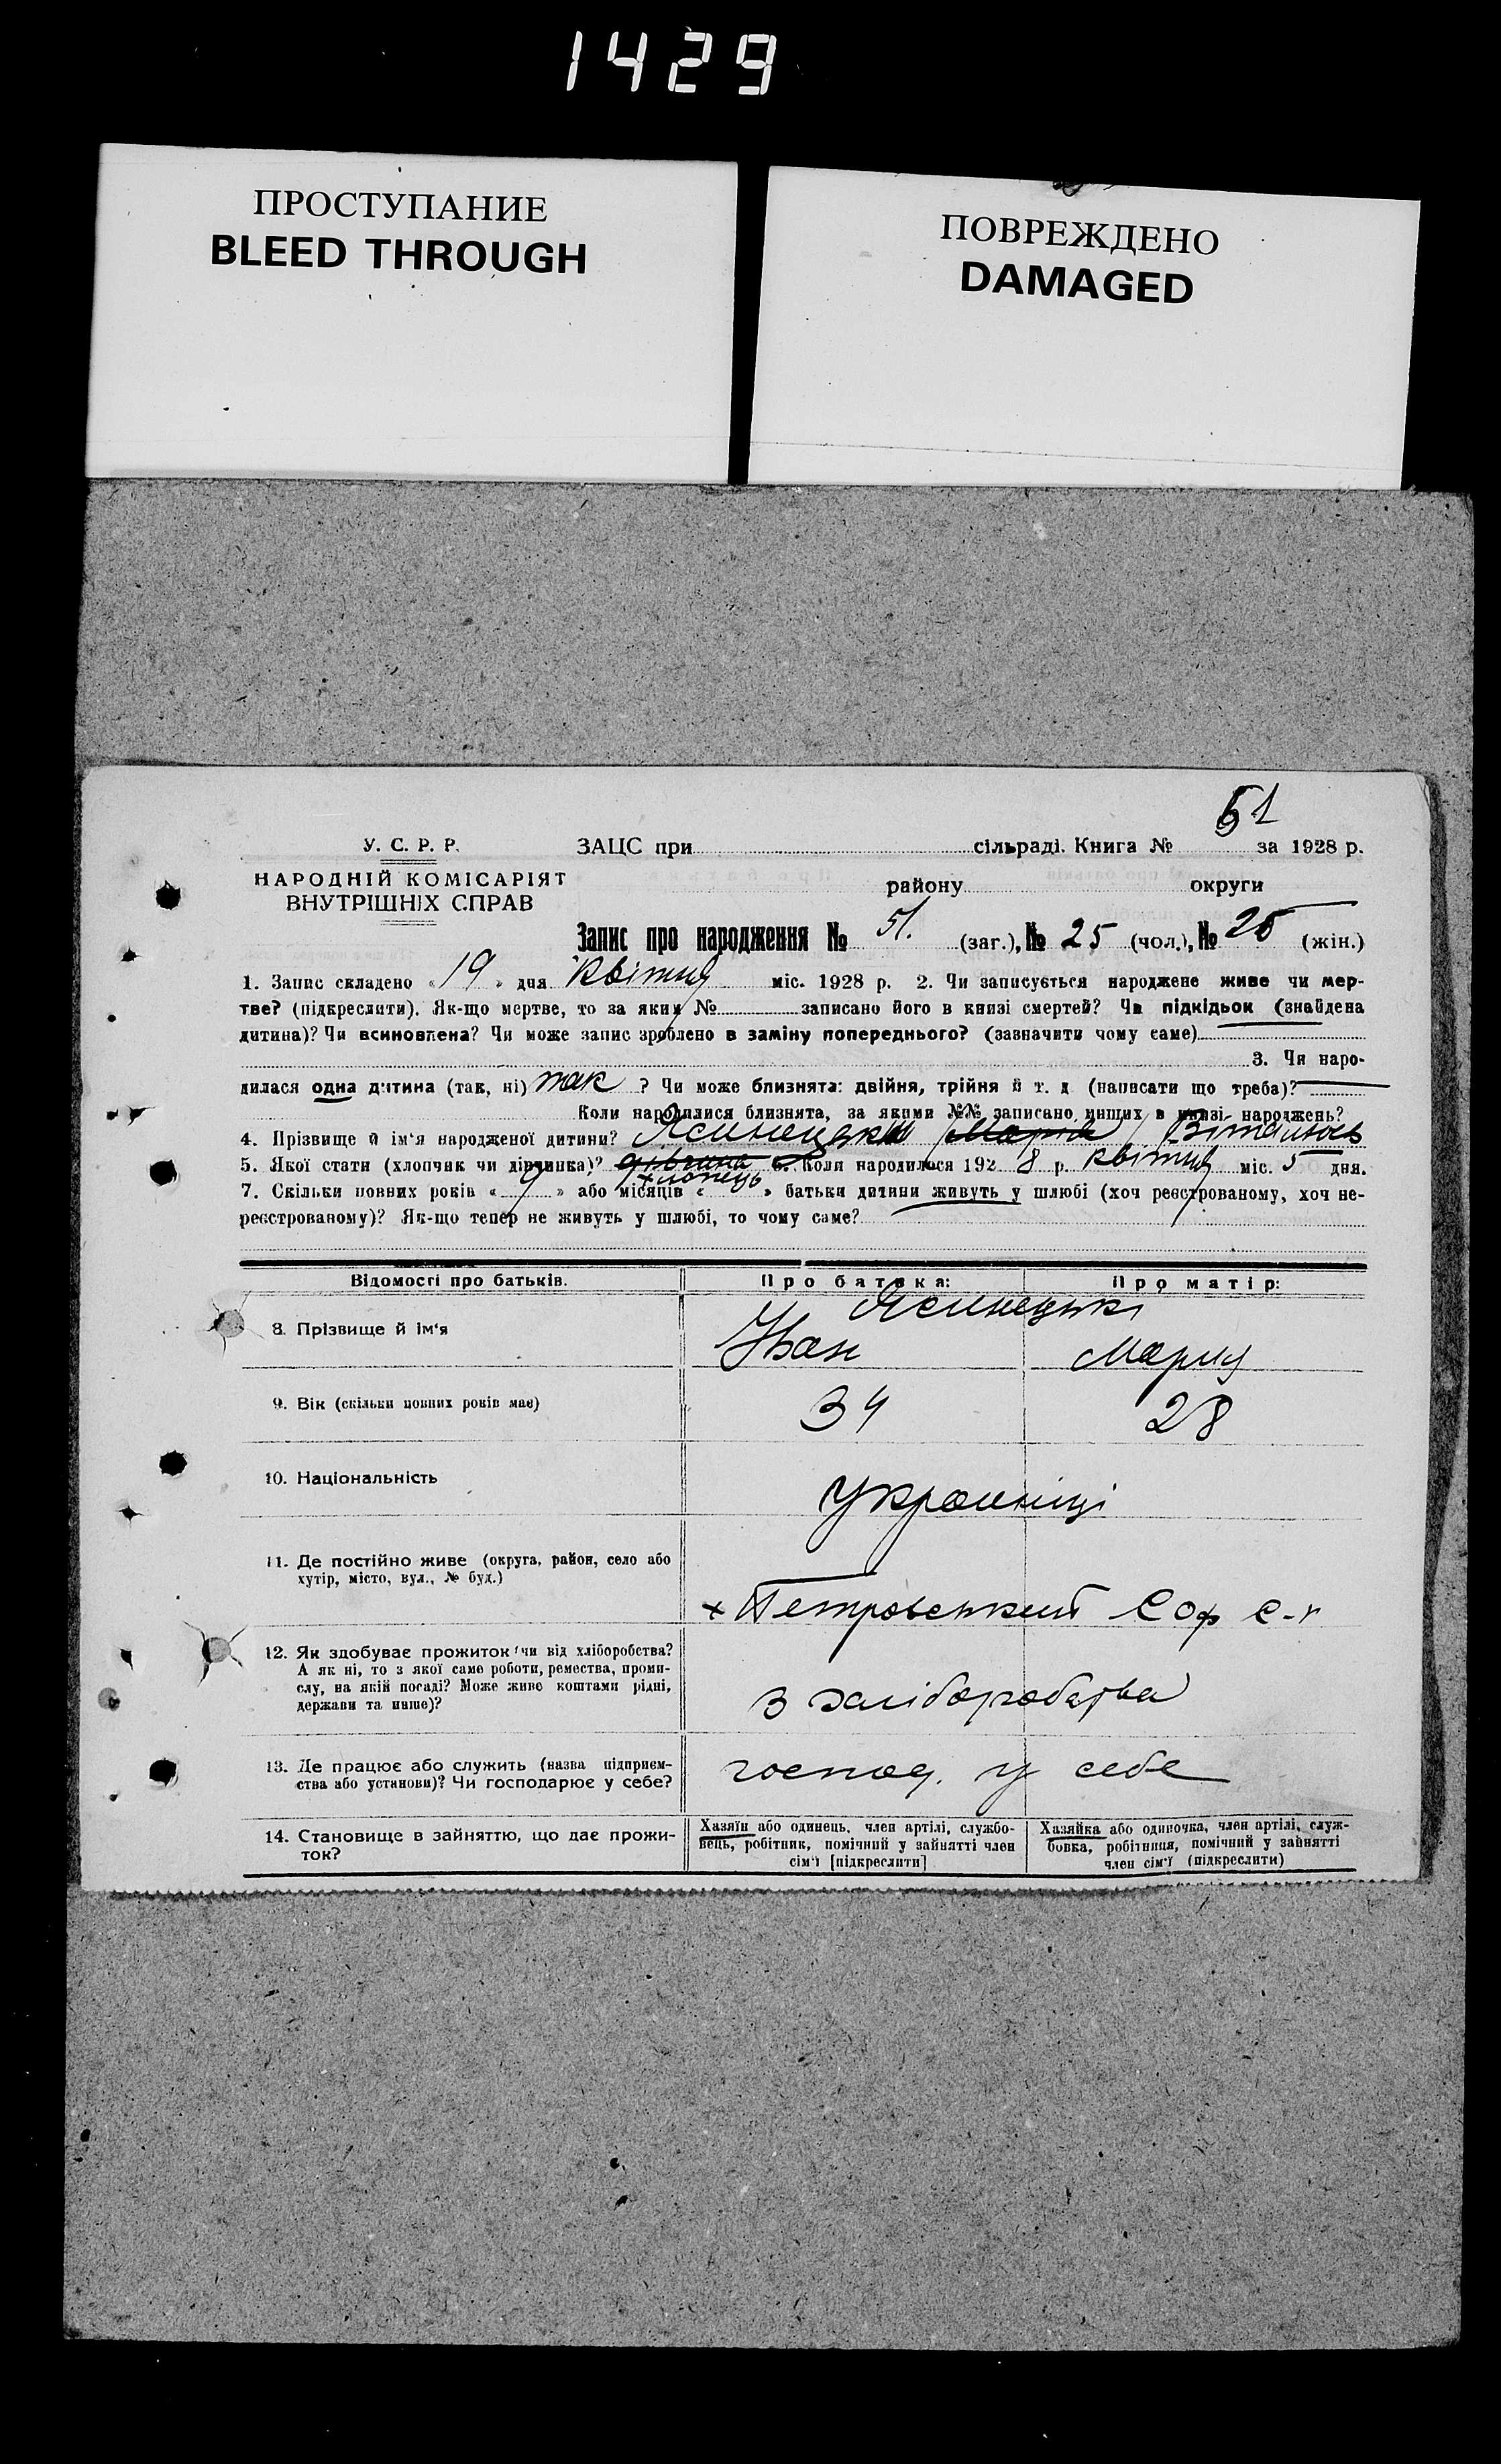 1429
ПРОСТУПАНИЕ
BLEED THROUGH
ПОВРЕЖДЕНО
DAMAGED
51
У. С. Р. Р. ЗАЦС при сільраді. Книга № за 1928 р.
НАРОДНІЙ КОМІСАРІЯТ району округи
ВНУТРІШНІХ СПРАВ
Запис про народження № 51. (заг.), № 25 (чол.), № 26 (жін.)
1. Запис складено «19» дня квітня міс. 1928 р. 2. Чи записується народжене живе чи мер-
тве? (підкреслити). Як-що мертве, то за яким № записано його в книзі смертей? Чи підкідьок (знайдена
дитина)? Чи всиновлена? Чи може запис зроблено в заміну попереднього? (зазначити чому саме)
3. Чи наро-
дилася одна дитина (так, ні) так ? Чи може близнята: двійня, трійня й т. д (написати що треба)?
Коли народилися близнята, за якими №№ записано инших в книзі народжень?
4. Прізвище й ім'я народженої дитини? Ясинецький Марія Віталій
5. Якої стати (хлопчак чи дівчинка)? дівчина 6. Коли народилося 1928 р. квітня міс. 5 дня.
хлопець
7. Скільки повних років «9» або місяців « » батьки дитини живуть у шлюбі (хоч реєстрованому, хоч не-
реєстрованому)? Як-що тепер не живуть у шлюбі, то чому саме?
Відомості про батьків. Про батька: Про матір:
Ясинецькі
8. Прізвище й ім'я Іван Мария
9. Вік (скільки повних років має) 34 28
10. Національність Українці
11. Де постійно живе (округа, район, село або
хутір, місто, вул., № буд.)
х Петровський Соф с-г
12. Як здобуває прожиток (чи від хліборобства?
А як ні, то з якої саме роботи, ремества, проми-
слу, на якій посаді? Може живе коштами рідні,
держави та инше)?
з хліборобства
13. Де працює або служить (назва підприєм-
ства або установи)? Чи господарює у себе?
господ. у себе
14. Становище в зайняттю, що дає прожи-
ток?
Хазяїн або одинець, член артілі, службо-
вець, робітник, помічний у зайнятті член
сім'ї [підкреслити]
Хазяйка або одиночка, член артілі, служ-
бовка, робітниця, помічний у зайнятті
член сім'ї (підкреслити)